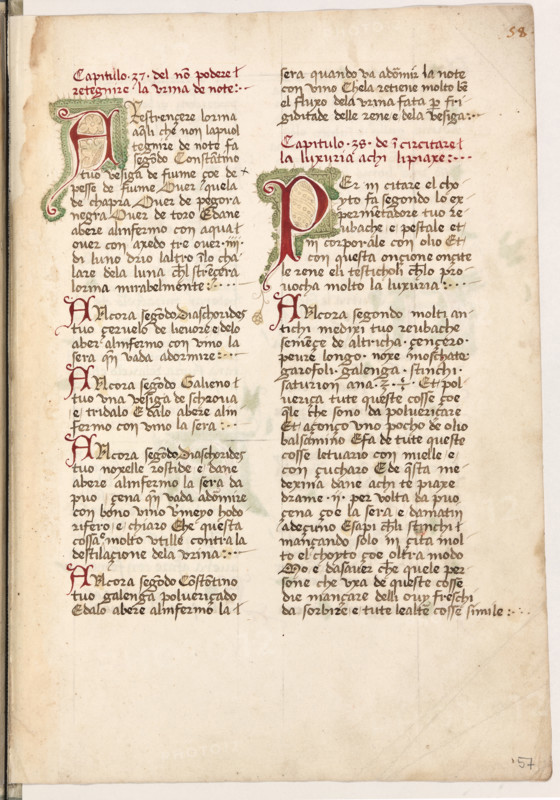 58.
Capitullo .27. del nō podere ł
retegnire la vrina de note:~
A Restrençere lorina
aq̄lli che non lapuol
tegnire de note fa
segōdo Constātino
tuo vesiga de fiume çoe de
pesse de fiume Ouer quela
de chapra. Ouer de pegora
negra. Ouer de toro Edane
abere alinfermo con aqua ł
ouer con axedo tre ouer .iiij.
di luno drio laltro
lare dela luna ch̄l strēçera
lorina mirabelmente:~
ARlcora segōdo diaschorides
tuo çeruelo de lieuore e delo
aber alinfermo con vino la
sera qn̄ vada adormire:~
ARlcora segōdo Galieno ł
tuo vna vesiga de schroua
e tridalo Edalo abere alin
fermo con vino la sera:~
ARlcora segōdo diaschorides
tuo noxelle rostide e dane
abere alinfermo la sera da
puo çena qn̄ vada adōmire
con bono vino vmeyo hodo
rifero e chiaro Che questa
cossa e molto vtille contra la
destilaçione dela vrina:~
ARlcora segōdo Cōstōtino
tuo galenga polueriçado
Edalo abere alinfermo la ł
sera quando va adōmir la note
con vino Chela retiene molto bē
el fluxo dela vrina fata p̲ fri
giditade delle rene e dela vesiga:~
Capitulo .28. de ī circitare ł
la luxuria achi li piaxe:~
PEr in citare el cho
yto fa segondo lo ex
perimētadore tuo re
ubache e pestale et
in corporale con olio Et
con questa oncione onçite
le rene eli testicholi ch̄lo pro
uocha molto la luxuria:~
ARlcora segondo molti an
tichi medixi tuo reubache
semēçe de altricha. çençero.
peure longo. noxe moschate
garofoli. galenga. stinchi.
saturion ana. Et pol
ueriça tute queste cosse çoe
q̄le che sono da poluericare
Et açonço vno pocho de olio
balsamino Efa de tute queste
cosse letuario con mielle e
con çucharo E de q̄sta me
dexina dane achi te piaxe
drame .ij. per volta da puo
çena çoe la sera e damatin
adeçuno Esapi ch̄lli stinchi ł
mançando solo in çita mol
to el chopto çoe oltra modo
Mo e dasauer che quele per
sone che vxa de queste cosse
die mançare delli ouy freschi
da sorbire e tute lealte cosse simile:~
57